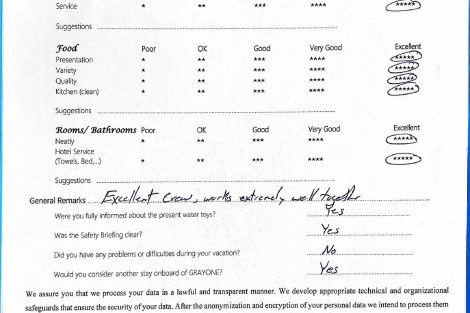 Service * ** *** **** *****
Suggestions
Food Poor OK Good Very Good Excellent
Presentation * ** *** **** *****
Variety * ** *** **** *****
Quality * ** *** **** *****
Kitchen (clean) * ** *** **** *****
Suggestions
Rooms/ Bathrooms Poor OK Good Very Good Excellent
Neatly * ** *** **** *****
Hotel Service
(Towels, Bed,...) * ** *** **** *****
Suggestions
General Remarks Excellent Crew, works extremely well together
Were you fully informed about the present water toys? Yes
Was the Safety Briefing clear? Yes
Did you have any problems or difficulties during your vacation? No
Would you consider another stay onboard of GRAYONE? Yes
We assure you that we process your data in a lawful and transparent manner. We develop appropriate technical and organizational
safeguards that ensure the security of your data. After the anonymization and encryption of your personal data we intend to process them